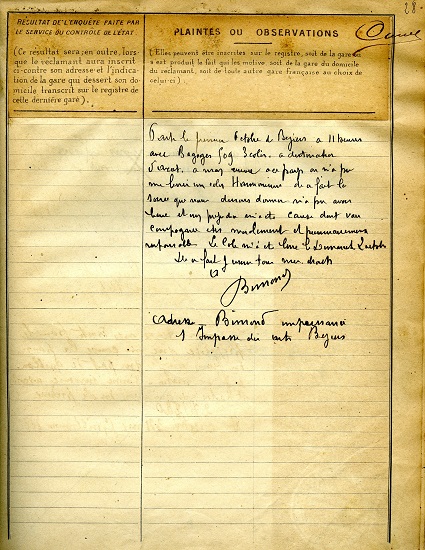 28
RÉSULTAT DE L'ENQUÊTE FAITE PAR
LE SERVICE DU CONTRÔLE DE L'ÉTAT
(Ce résultat sera, en outre, lors-
que le réclamant aura inscrit
ci-contre son adresse et l'indica-
tion de la gare qui dessert son do-
micile transcrit sur le registre de
cette dernière gare).
PLAINTES OU OBSERVATIONS
(Elles peuvent être inscrites sur le registre, soit de la gare où
s'est produit le fait qui les motive soit de la gare du domicile
du réclamant, soit de toute autre gare française au choix de
celui-ci)
Parti le premier Octobre de Beziers a 11 heures
avec Bagages 509 3 colis a destination
a mon a ce pays on n'a pu
me livrer un colis Harmonium de a fait la
que nous devions donner n'a pu avoir
lieu et m'a cause dont vôtre
compagnie est moralement et
responsable Le Colis n'a été livré le Dimanche 2 octobre
De ce fait j' tous mes droits
Bimond
Adresse Bimond
1 Impasse du Beziers